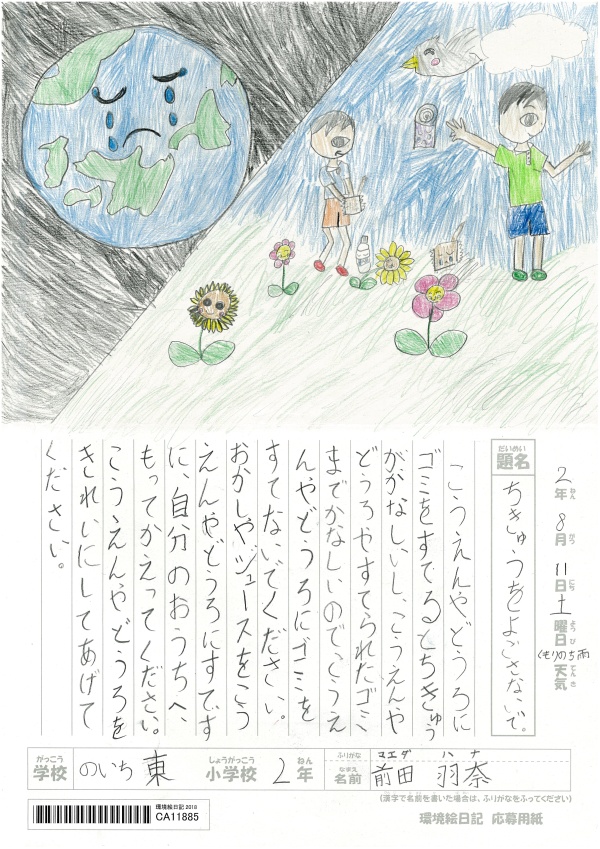 2年8月11日土曜日 天気 くもりのち雨
ねん がつ にち よう び てんき
だいめい
題名 ちきゅうをよごさないで。
こうえんやどうろに
ゴミをすてるとちきゅう
がかなしいし、こうえんや
どうろやすてられたゴミ
までかなしいので、こうえ
んやどうろにゴミを
すてないでください。
おかしやジュースをこう
えんやどうろにすてず
に、自分のおうちへ、
もってかえってください。
こうえんやどうろを
きれいにしてあげて
ください。
がっこう しょうがっこう ねん ふりがな マエダ ハナ
学校 のいち東 小学校 2年 なまえ 名前 前田 羽奈
(漢字で名前を書いた場合は、ふりがなをふってください)
環境絵日記2018
CA11885
環境絵日記 応募用紙